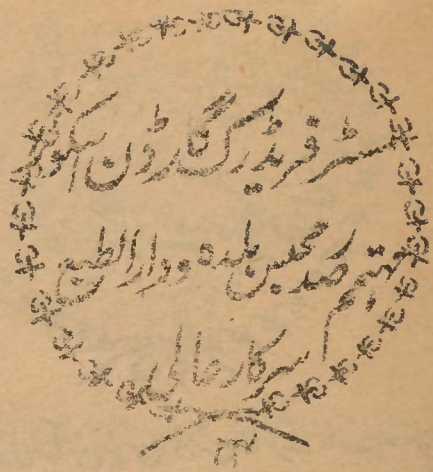 مسٹر فریڈرک گارڈن اسکوئر
مہتمم صدر محبس بلدہ و دارالطبع
سرکار عالی